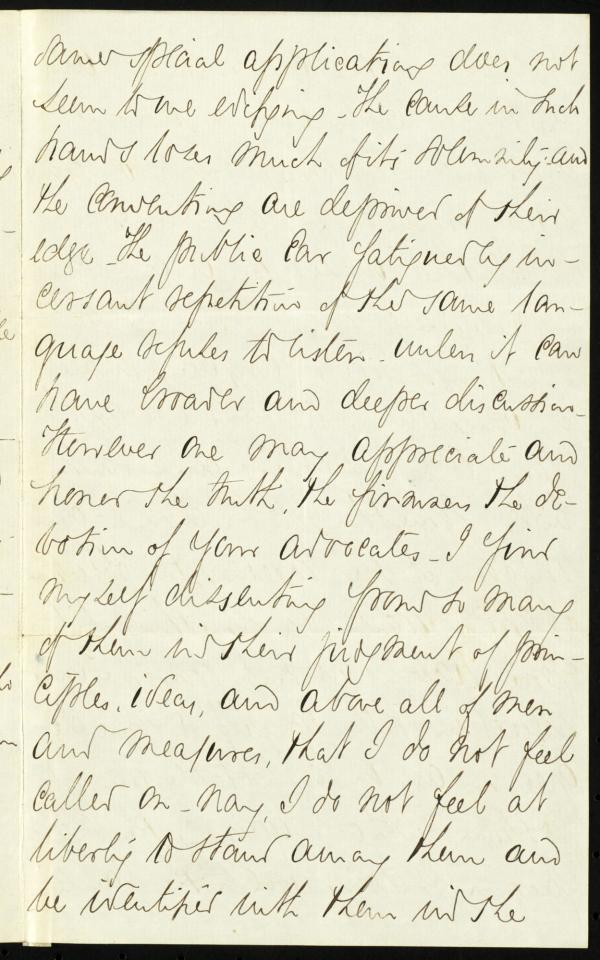 same special applications does not
seem to me edifying - The cause in such
hands loses much of its solemnity - and
the conventions are deprived of their
edge - The public ear fatigued by in-
cessant repetition of the same lan-
guage refuses to listen - unless it can
have broader and deeper discussion -
However one may appreciate and
honor the truth, the firmness the de-
votion of your advocates - I find
myself dissenting from so many
of them in their judgment of prin-
ciples, ideas, and above all of men
and measures, that I do not feel
called on - nay, I do not feel at
liberty to stand among them and
be identified with them in the